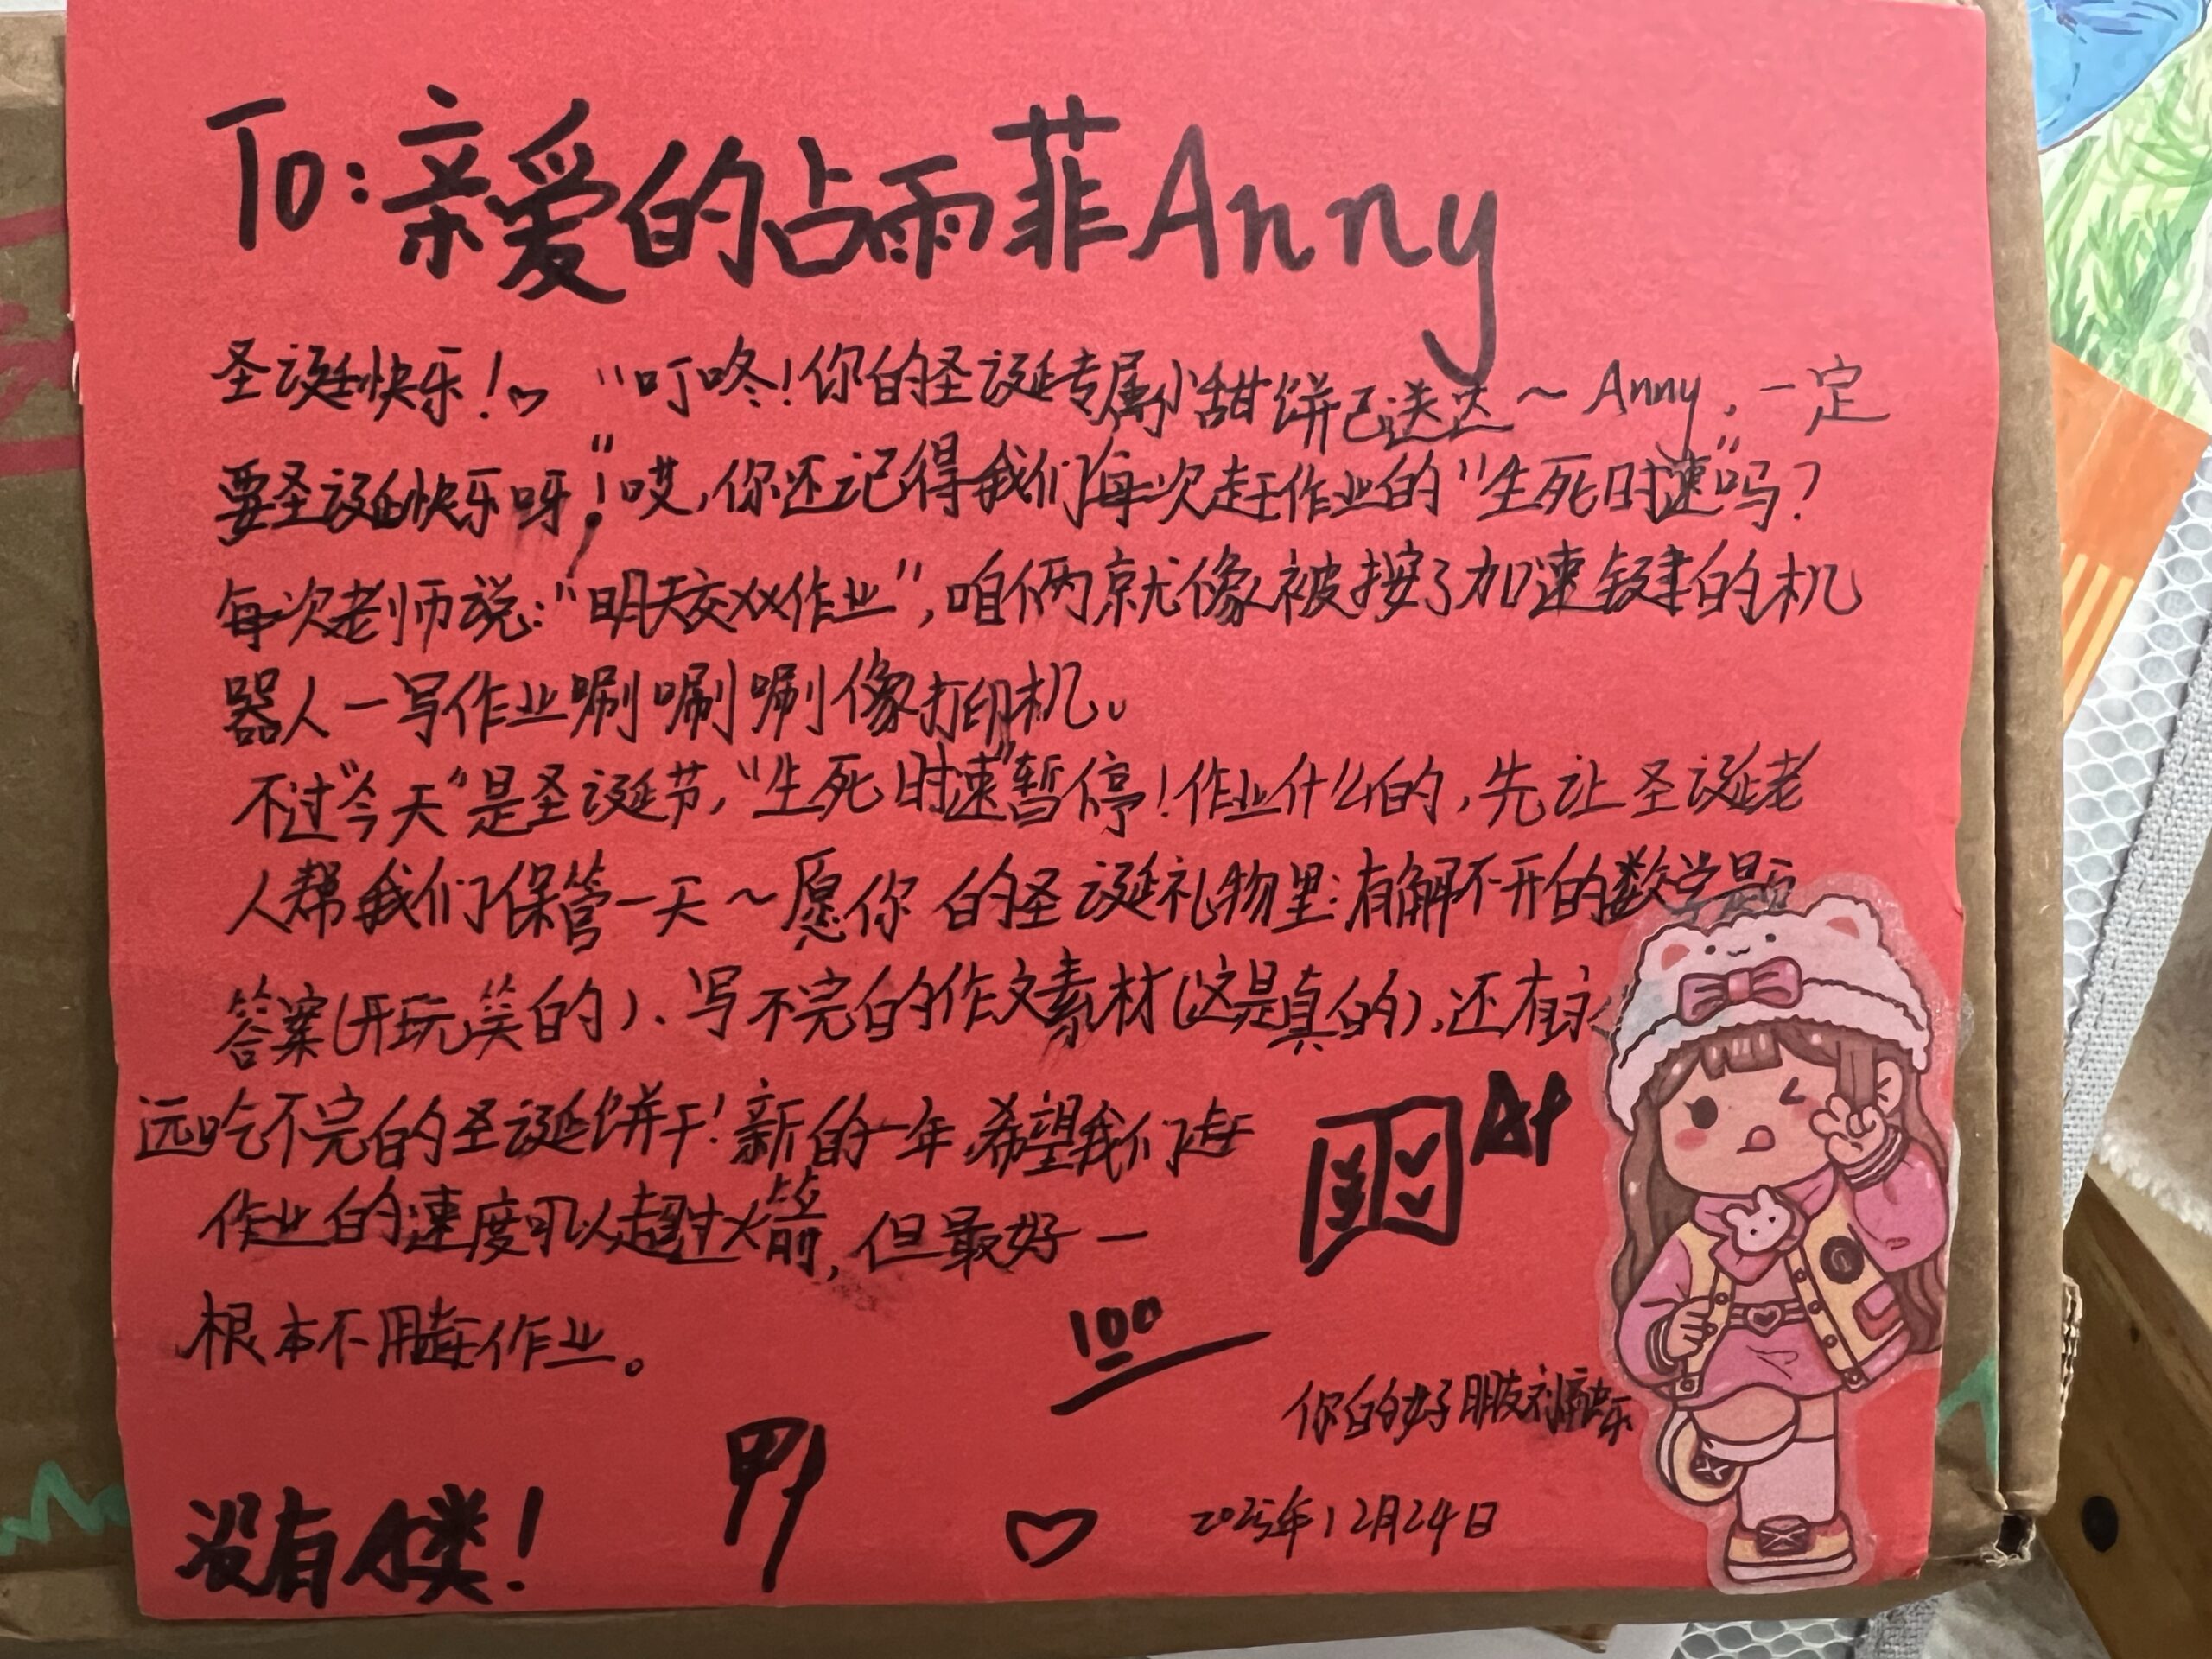 To:亲爱的占雨菲Anny
圣诞快乐!♡ “叮咚!你的圣诞专属小甜饼已送达~Anny,一定
要圣诞快乐呀!”哎,你还记得我们每次赶作业的“生死时速”吗?
每次老师说:“明天交xx作业”,咱俩就像被按了加速键的机
器人一写作业唰唰唰像打印机。
不过“今天”是圣诞节,“生死时速”暂停!作业什么的,先让圣诞老
人帮我们保管一天~愿你的圣诞礼物里:有解不开的数学题
答案(开玩笑的)、写不完的作文素材(这是真的),还有永
远吃不完的圣诞饼干!新的一年,希望我们赶
作业的速度可以超过火箭,但最好一
根本不用赶作业。
A+
100
你的好朋友
2025年12月24日
没有A类!